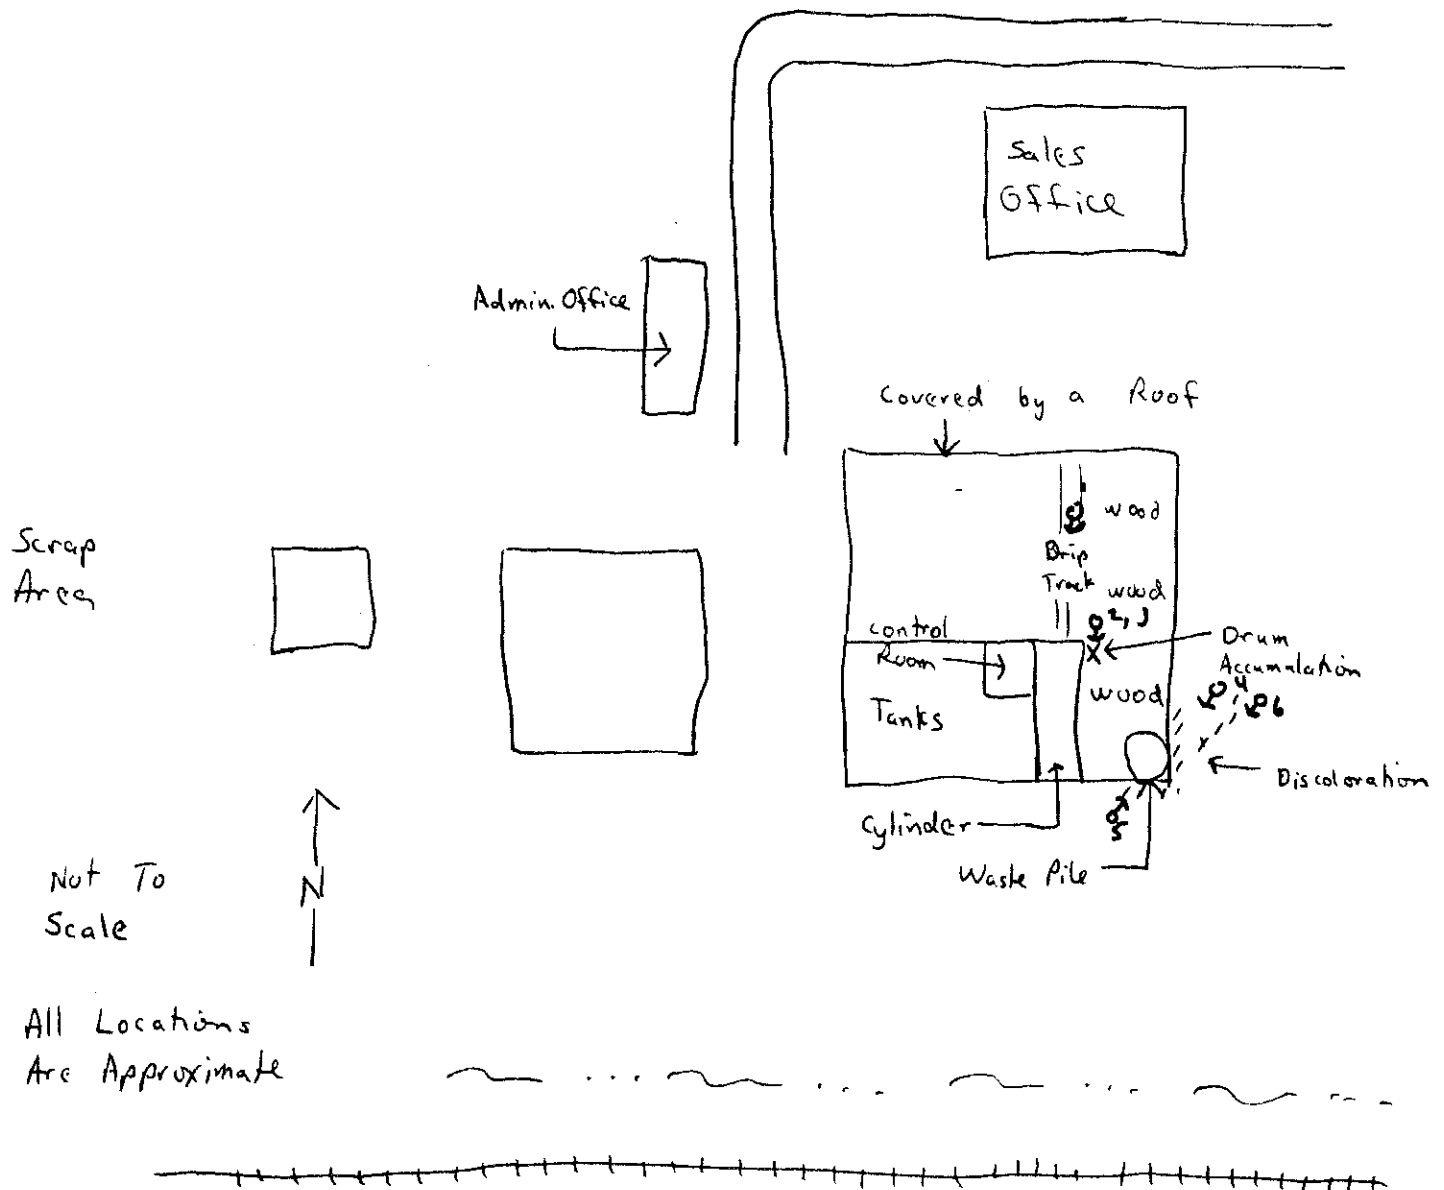 Sales
Office
Admin. Office
Covered by a Roof
wood
Drip
Track
wood
2, 3
Scrap
Area
Control
Room
Drum
Accumulation
wood
4
6
Tanks
Discoloration
5
Cylinder
Waste Pile
Not To
Scale
N
All Locations
Are Approximate